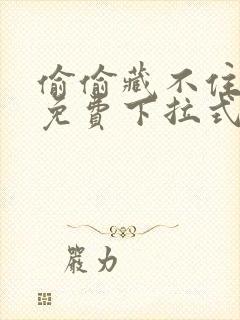 偷偷藏不住
免費下拉式
嚴力